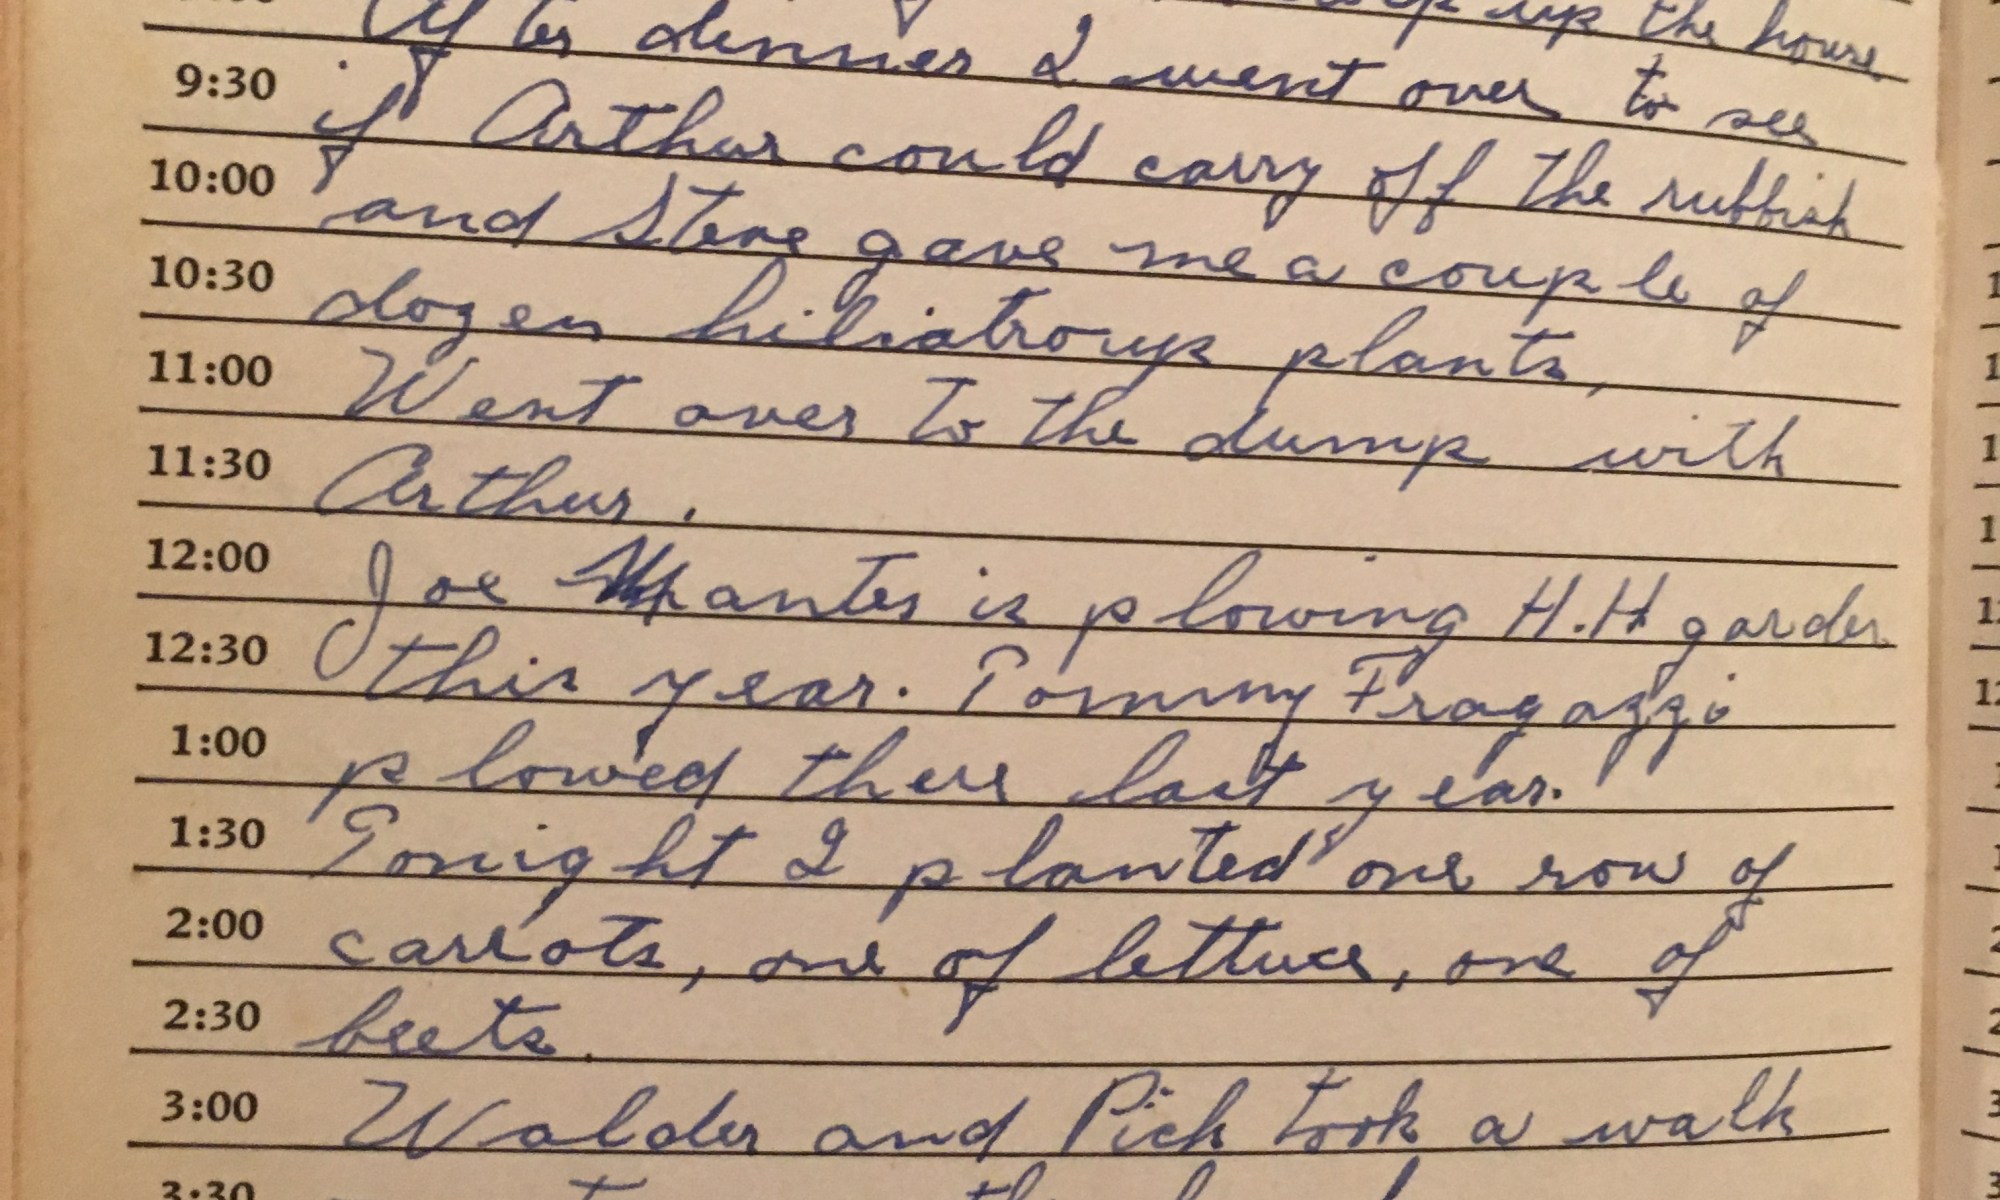 up the house
After dinner I went over to see
9:30
if Arthur could carry off the rubbish
10:00
and Steve gave me a couple of
10:30
dozen hiliatroup plants,
11:00
Went over to the dump with
11:30
Arthur.
12:00
Joe antes is plowing H.H garden
12:30
this year. Tommy Fragazzi
1:00
plowed there last year.
1:30
Tonight I planted one row of
2:00
carrots, one of lettuce, one of
2:30
beets.
3:00
Walder and Pich took a walk
3:30